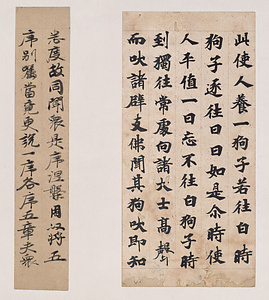 此使人養一狗子若往白時
狗子逐往日日如是尒時使
人平值一日忘不往白狗子時
到獨往常處向諸大士高聲
而吠諸辟支佛聞其狗吠即知
度故同聞衆是序涅槃用 將五
序別 當 更說一序各序五章夫衆